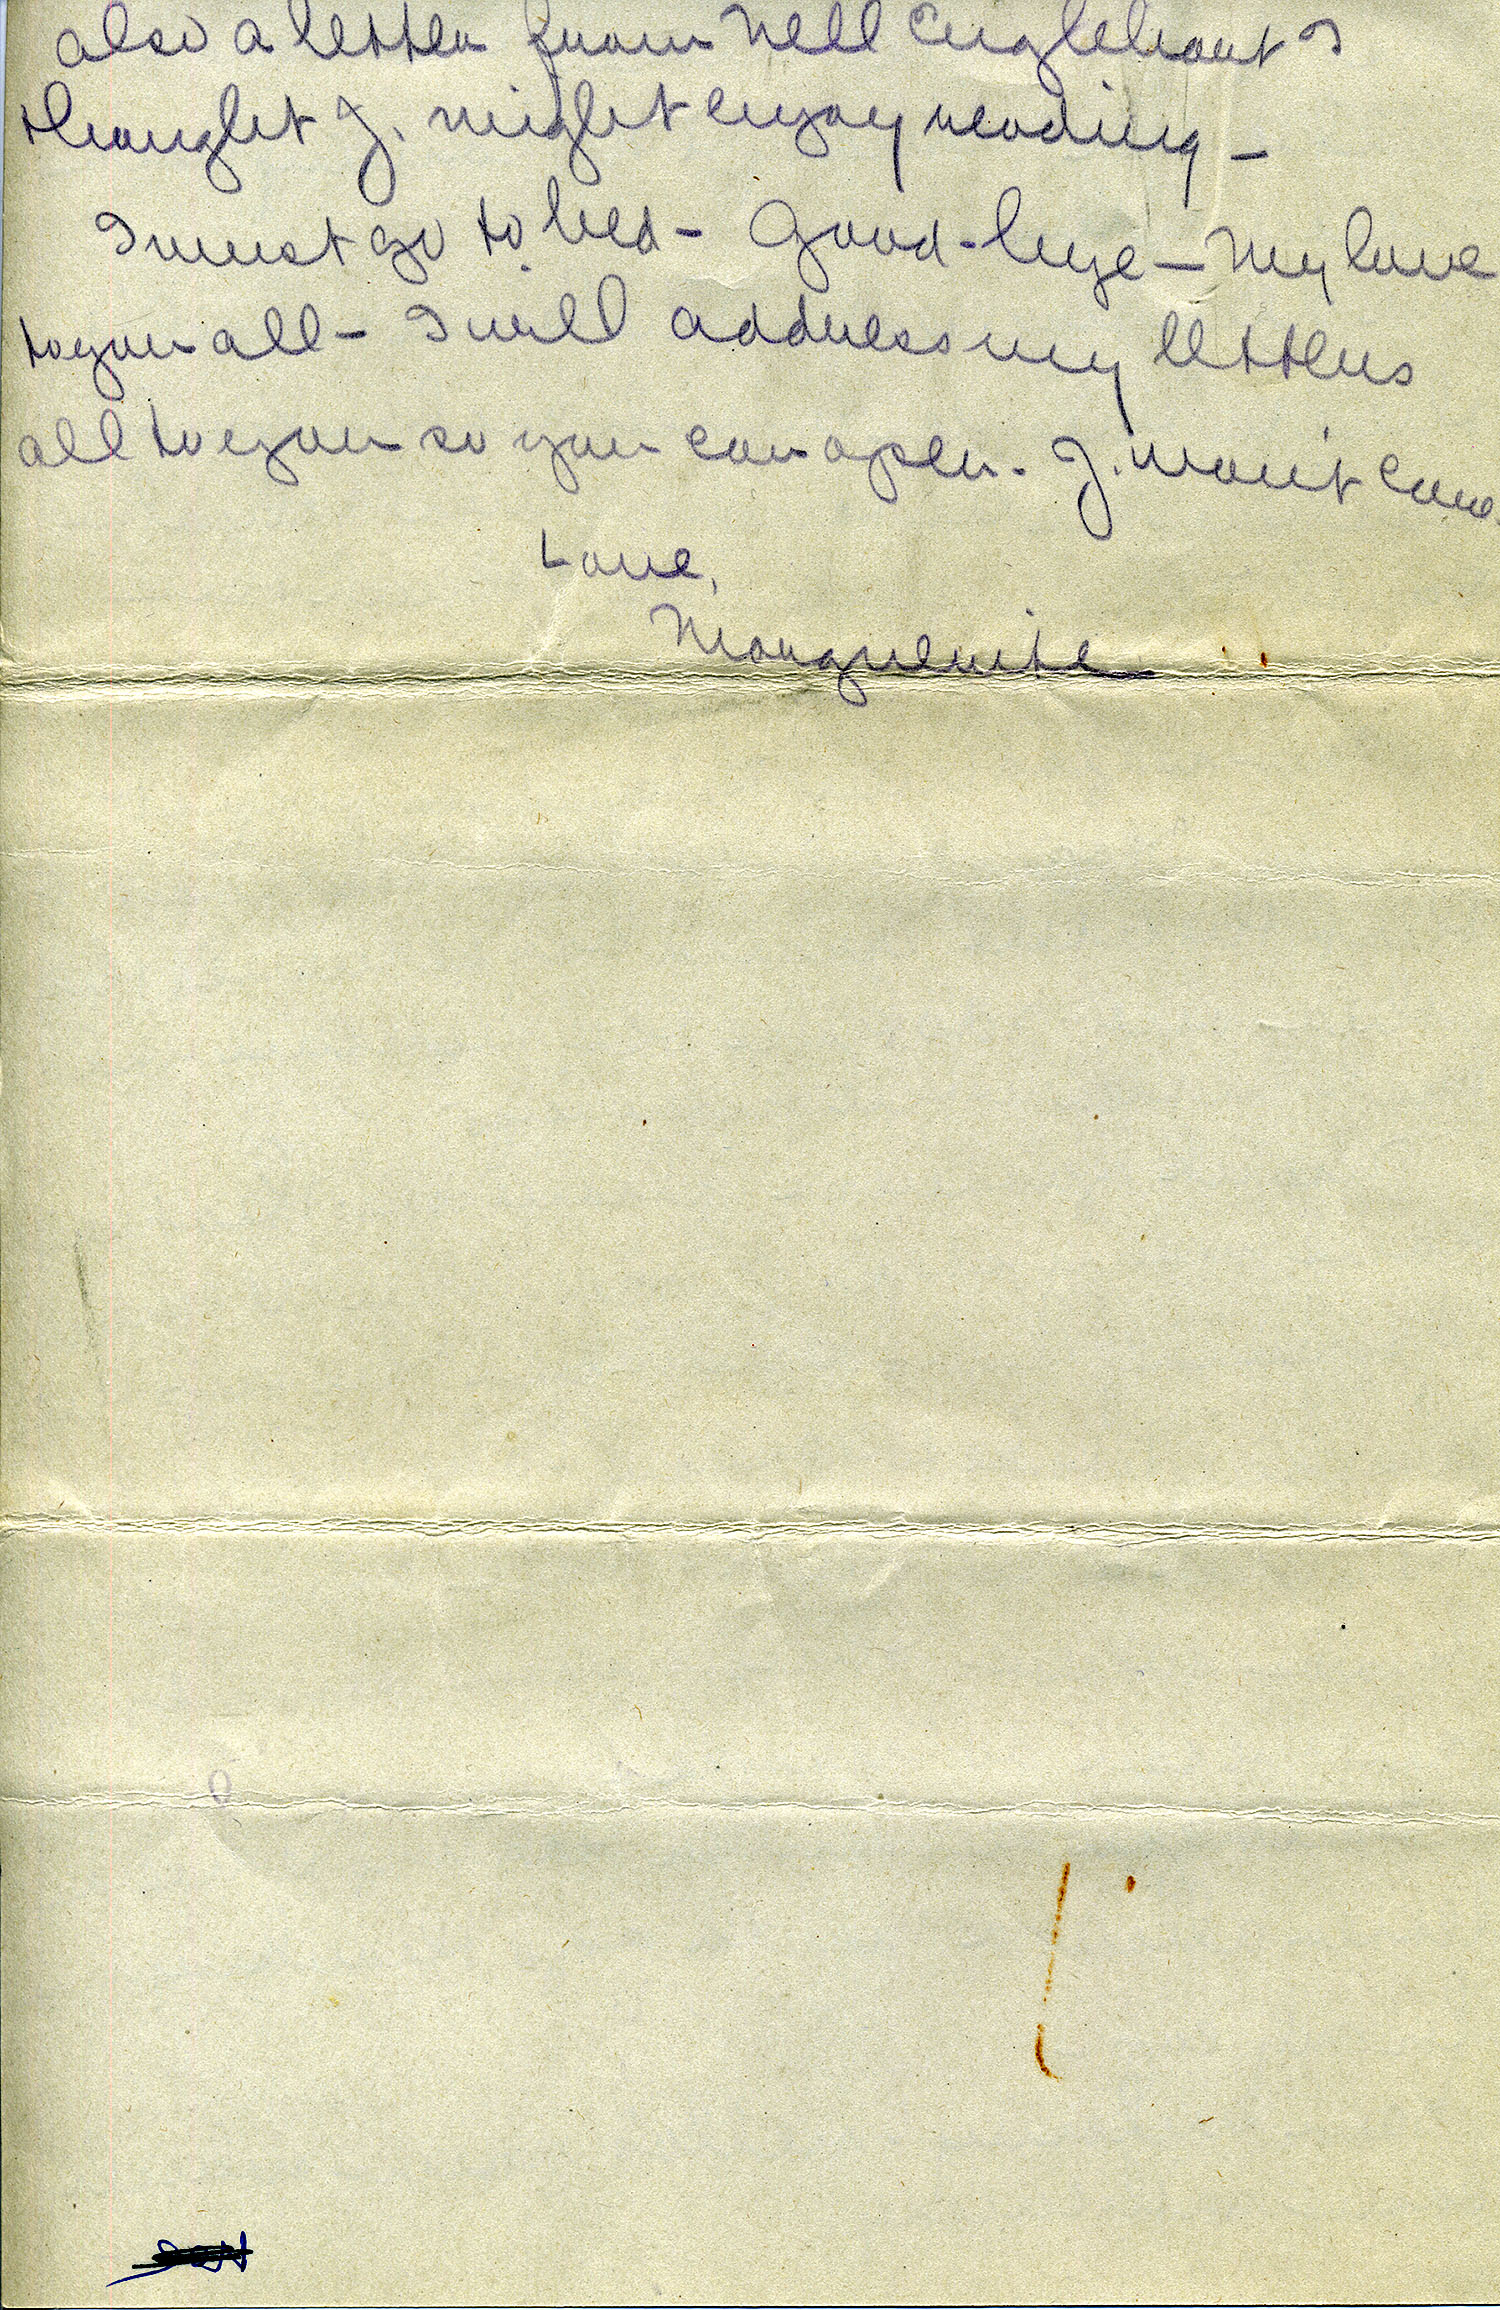 also a letter from Nell Englehart I
thought J. might enjoy reading –
I must go to bed – Good-bye – My love
to you all – I will address my letters
all to you so you can open. J. won't care.
Love,
Marguerite